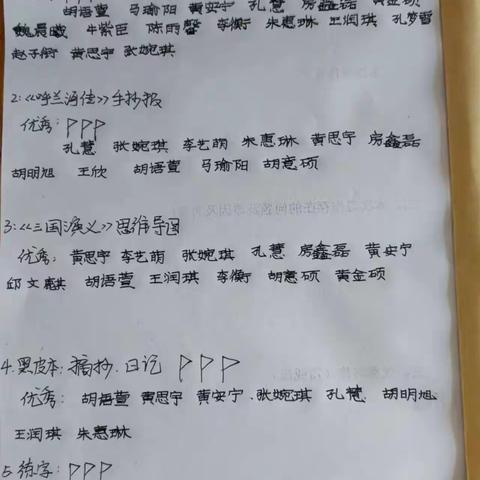 胡语萱 马瑜阳 黄安宁 孔慧 房鑫磊 黄金硕
魏晨曦 牛紫臣 陈雨馨 李衡 朱惠琳 王润琪 孔梦雪
赵子舒 黄思宇 张婉琪
2:《呼兰河传》手抄报
优秀:
孔慧 张婉琪 李艺萌 朱惠琳 黄思宇 房鑫磊
胡明旭 王欣 胡语萱 马瑜阳 胡意硕
3:《三国演义》思维导图
优秀: 黄思宇 李艺萌 张婉琪 孔慧 房鑫磊 黄安宁
邱文麒 胡语萱 王润琪 李衡 胡意硕 黄金硕
4.黑皮本:摘抄.日记
优秀: 胡语萱 黄思宇 黄安宁.张婉琪 孔慧 胡明旭
王润琪 朱惠琳
5.练字: